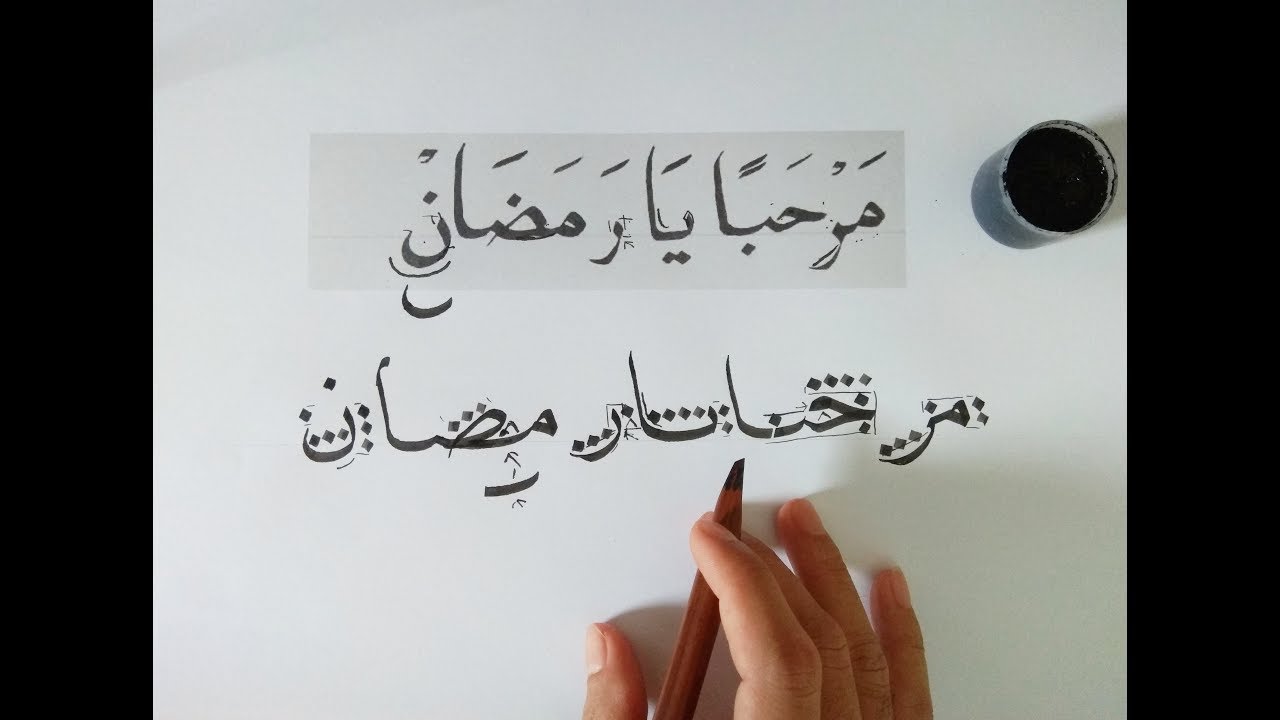 مَرْحَبًا يَا رَمَضَانْ
مرحبا يا رمضان